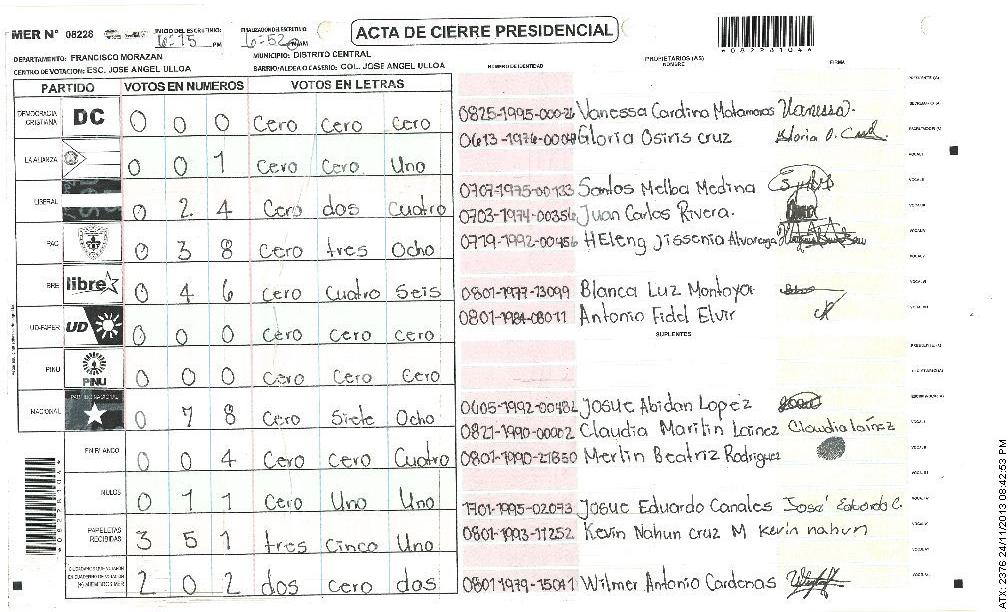 MER N° 08228
INICIO DEL ESCRUTINIO: 6:15 PM
FINALIZACION DEL ESCRUTINIO 6:52
ACTA DE CIERRE PRESIDENCIAL
082281044
DEPARTAMENTO: FRANCISCO MORAZAN
MUNICIPIO: DISTRITO CENTRAL
CENTRO DE VOTACION: ESC. JOSE ANGEL ULLOA
BARRIO/ALDEA O CASERIO: COL. JOSE ANGEL ULLOA
NUMERO DE IDENTIDAD
PROPIETARIOS (AS)
NOMBRE
FIRMA
PARTIDO VOTOS EN NUMEROS VOTOS EN LETRAS
DEMOCRACIA CRISTIANA DC 0 0 0 Cero Cero Cero
LA ALIANZA 0 0 1 Cero Cero Uno
LIBERAL 0 2 4 Cero dos Cuatro
PAC 0 3 8 Cero tres Ocho
BRE libre 0 4 6 Cero Cuatro Seis
UD-FAPER UD 0 0 0 Cero Cero Cero
PINU PINU 0 0 0 Cero Cero Cero
NACIONAL PARTIDO NACIONAL 0 7 8 Cero Siete Ocho
EN BLANCO 0 0 4 Cero Cero Cuatro
NULOS 0 1 1 Cero Uno Uno
PAPELETAS RECIBIDAS 3 5 1 tres Cinco Uno
CIUDADANOS QUE VOTARON
EN CUADERNO DE VOTACION
(+) MIEMBROS MER 2 0 2 dos cero dos
0825-1995-00026 Vanessa Cardina Matamoros Vanessa
0613-1976-00049 Gloria Osiris Cruz Gloria O. Cruz
0707-1975-00133 Santos Melba Medina
0703-1974-00356 Juan Carlos Rivera.
0719-1992-00456 HEleng Jissenia Alvarenga
0801-1977-13099 Blanca Luz Montoya
0801-1984-08011 Antonio Fidel Elvir
SUPLENTES
0605-1992-00482 Josue Abidan Lopez
0821-1990-00002 Claudia Marilin Lainez Claudia lainez
0801-1990-21850 Merlin Beatriz Rodriguez
1701-1995-02073 Josue Eduardo Canales José Eduardo C.
0801-1993-11252 Kevin Nahun cruz M kevin nahun
0801-1979-15041 Wilmer Antonio Cardenas
ATX-2376 24/11/2013 08:42:53 PM